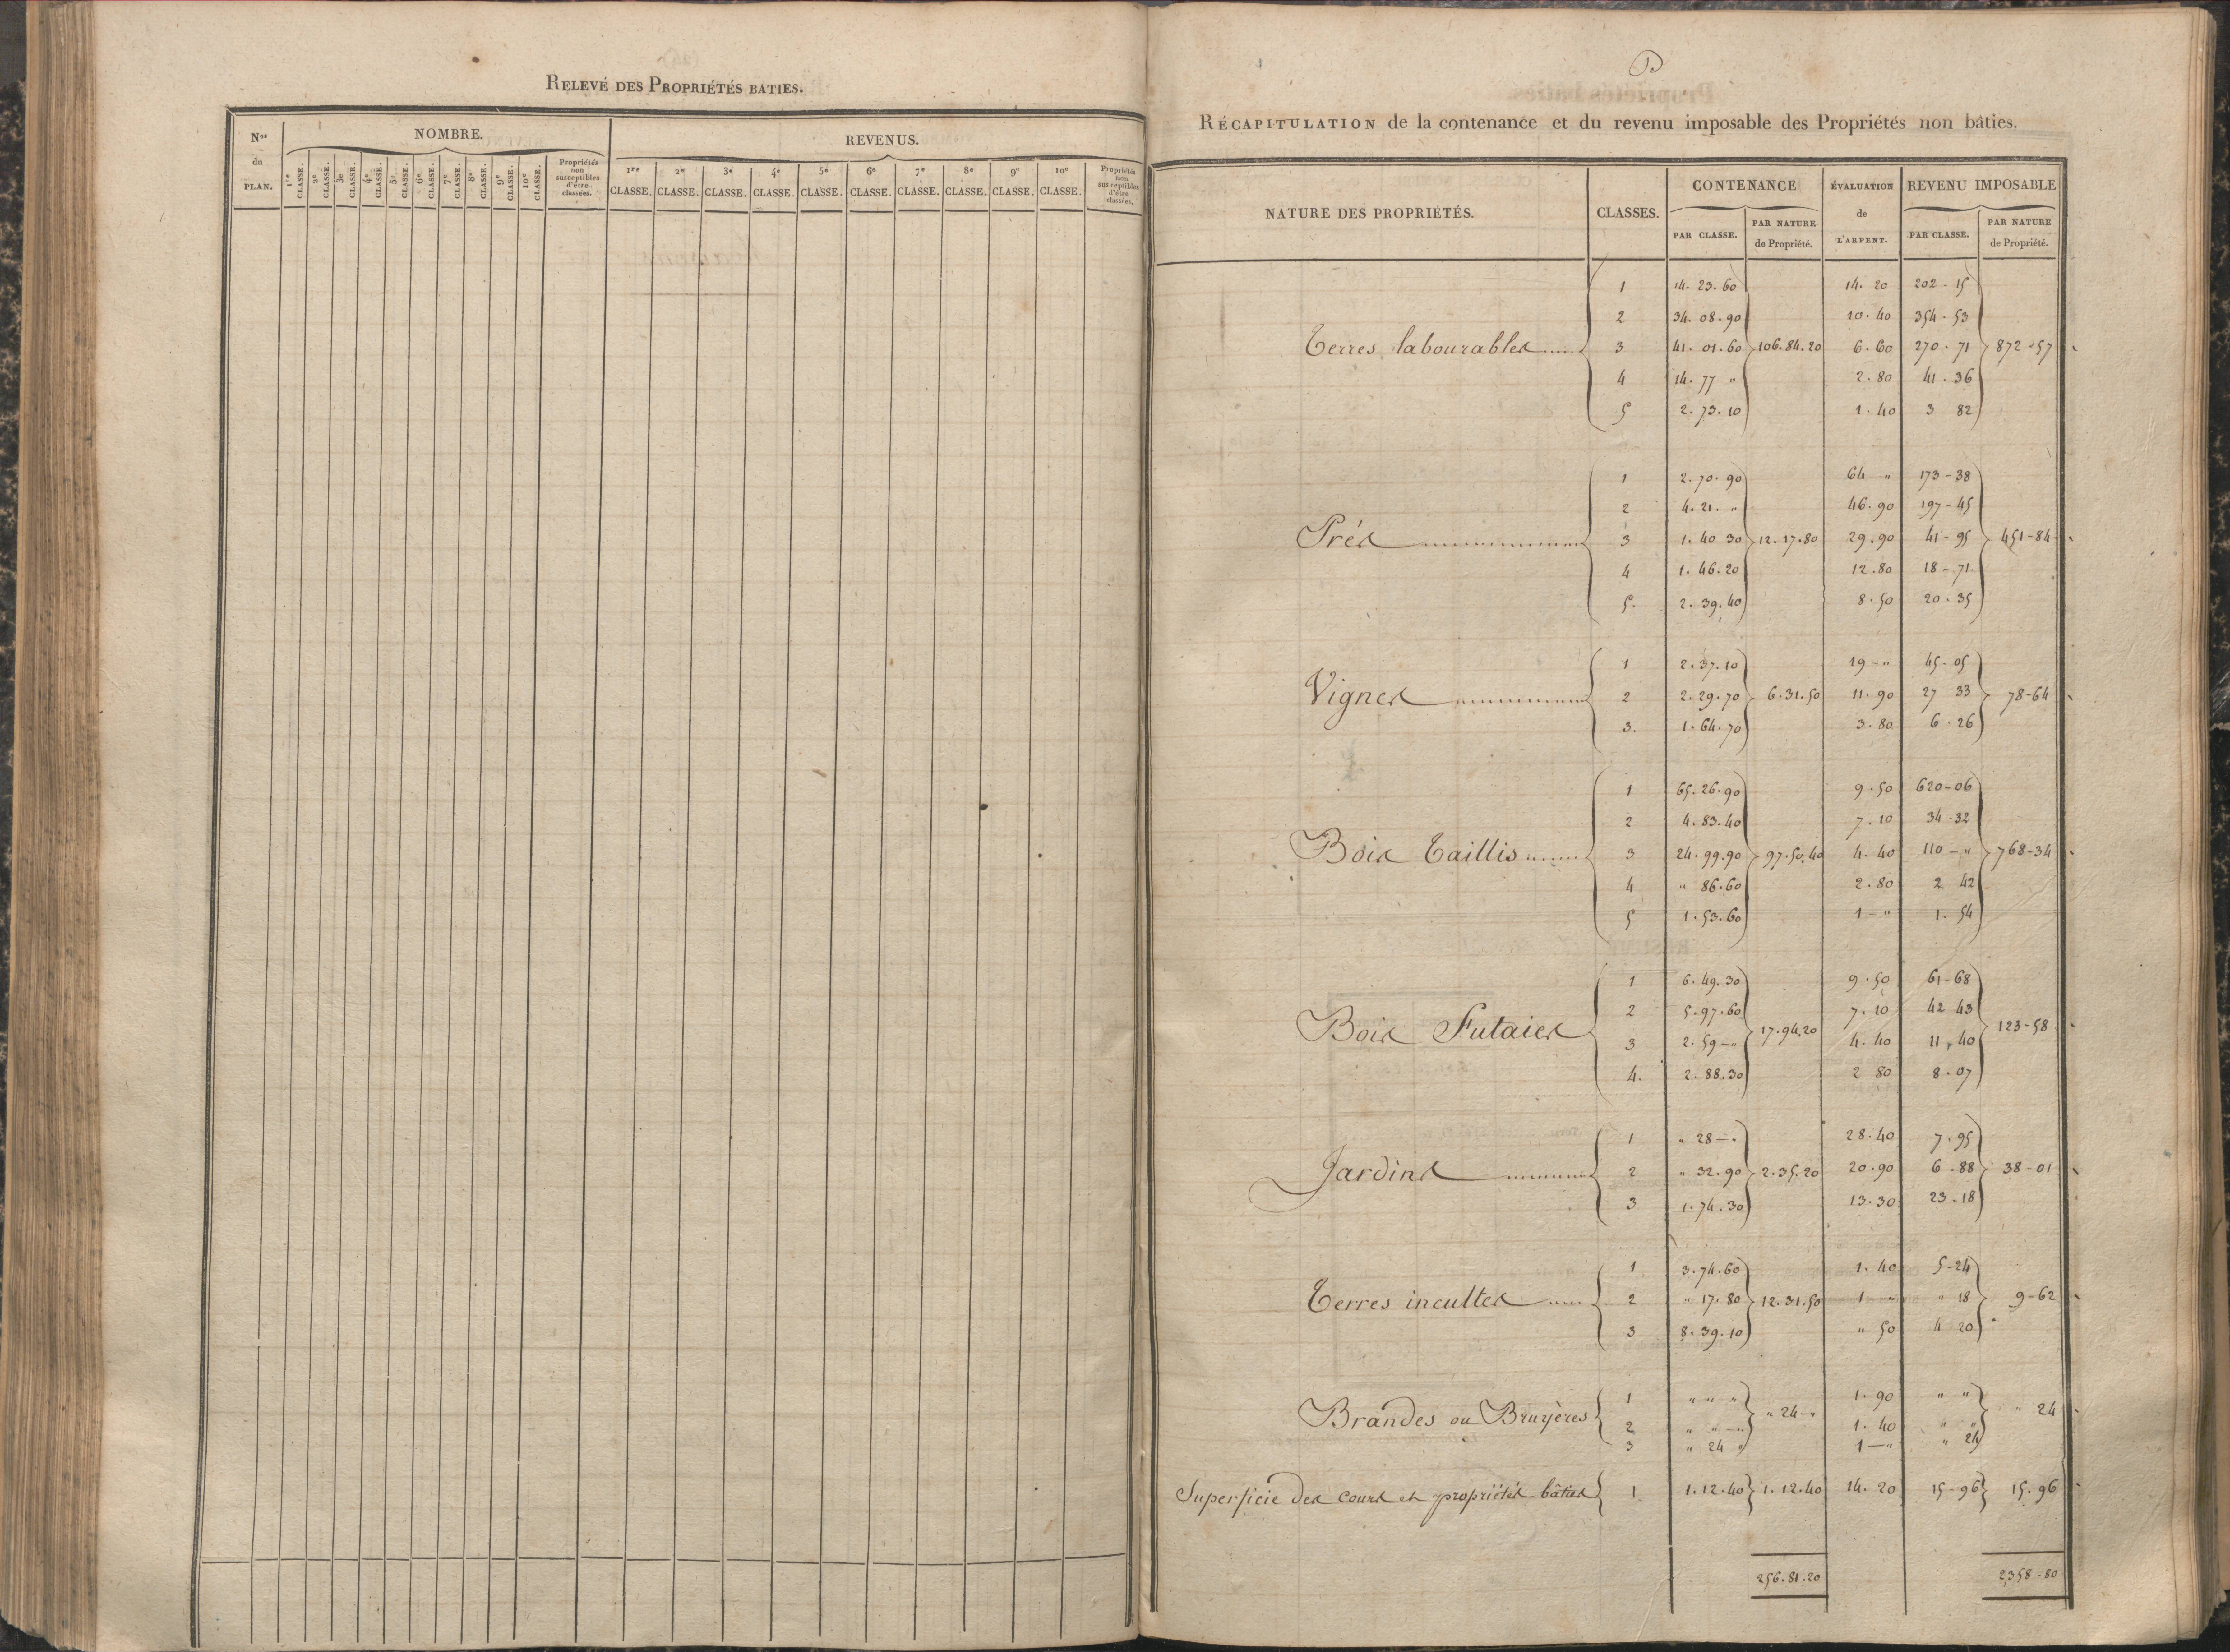 RELEVÉ DES PROPRIÉTÉS BATIES.
Nos du PLAN. NOMBRE. REVENUS.
1re CLASSE. 2e CLASSE. 3e CLASSE. 4e CLASSE. 5e CLASSE. 6e CLASSE. 7e CLASSE. 8e CLASSE. 9e CLASSE. 10e CLASSE. Propriétés non susceptibles d'être classées.
1re CLASSE. 2e CLASSE. 3e CLASSE. 4e CLASSE. 5e CLASSE. 6e CLASSE. 7e CLASSE. 8e CLASSE. 9e CLASSE. 10e CLASSE. Propriétés non susceptibles d'être classées.
RÉCAPITULATION de la contenance et du revenu imposable des Propriétés non bâties.
NATURE DES PROPRIÉTÉS. CLASSES. CONTENANCE ÉVALUATION de L'ARPENT. REVENU IMPOSABLE
PAR CLASSE. PAR NATURE de Propriété. PAR CLASSE. PAR NATURE de Propriété.
1 14. 23. 60 14. 20 202 - 15
2 34. 08. 90 10. 40 354. 53
Terres labourables 3 41. 01. 60 106. 84. 20 6. 60 270. 71 872 - 57
4 14. 77 " 2. 80 41. 36
5 2. 73. 10 1. 40 3 82
1 2. 70. 90 64 " 173 - 38
2 4. 21. " 46. 90 197 - 45
Prés 3 1. 40 30 12. 17. 80 29. 90 41 - 95 451 - 84
4 1. 46. 20 12. 80 18 - 71
5. 2. 39. 40 8. 50 20. 35
1 2. 37. 10 19 - " 45. 05
Vignes 2 2. 29. 70 6. 31. 50 11. 90 27 33 78 - 64
3. 1. 64. 70 3. 80 6. 26
1 65. 26. 90 9. 50 620 - 06
2 4. 83. 40 7. 10 34 - 32
Bois Taillis 3 24. 99. 90 97. 50. 40 4. 40 110 - " 768 - 34
4 " 86. 60 2. 80 2 42
5 1. 53. 60 1 - " 1. 54
1 6. 49. 30 9. 50 61 - 68
2 5. 97. 60 7. 10 42 43
Bois Futaies 17. 94. 20 123 - 58
3 2. 59 - " 4. 40 11, 40
4. 2. 88. 30 2 80 8. 07
1 " 28 - " 28. 40 7. 95
Jardins 2 " 32. 90 2. 35. 20 20. 90 6 - 88 38 - 01
3 1. 74. 30 13. 30 23 - 18
1 3. 74. 60 1. 40 5 - 24
Terres incultes 2 " 17. 80 12. 31. 50 1 " " 18 9 - 62
3 8. 39. 10 " 50 4 20
1 " " " 1. 90 " "
Brandes ou Bruyères " 24 - " " 24
2 " " - " 1. 40 " "
3 " 24 " 1 - " " 24
Superficie des cours et propriétés bâties 1 1. 12. 40 1. 12. 40 14. 20 15 - 96 15. 96
256. 81. 20 2,358 - 80